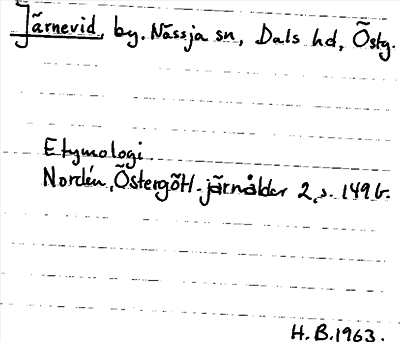 Järnevid, by. Nässja sn, Dals hd, Östg.
Etymologi
Nordén, Östergötl. järnålder 2, s. 149 f.
H. B. 1963.